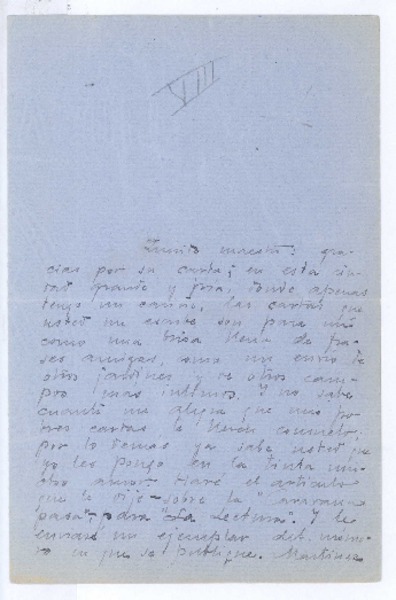 VIII
Querido maestro: gra-
cias por su carta; en esta ciu-
dad grande y fría, donde apenas
tengo un cariño, las cartas que
usted me escribe son para mí
como una brisa llena de fra-
ses amigas, como un envío de
otros jardines y de otros cam-
pos mas íntimos. Y no sabe
cuanto me alegra que mis po-
bres cartas le lleven consuelo;
por lo demas ya sabe usted que
yo les pongo en la tinta mu-
cho amor. Haré el artículo
que le dije - sobre la
pasa", para "La Lectura". Y le
enviaré un ejemplar del núme-
ro en que se publique. Martínez